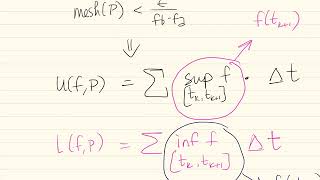 mesh(P) < ε/fb-fa
f(tₖ₊₁)
⇓
U(f,P) = ∑ sup f [tₖ,tₖ₊₁] · Δt
L(f,P) = ∑ inf f [tₖ,tₖ₊₁] Δt